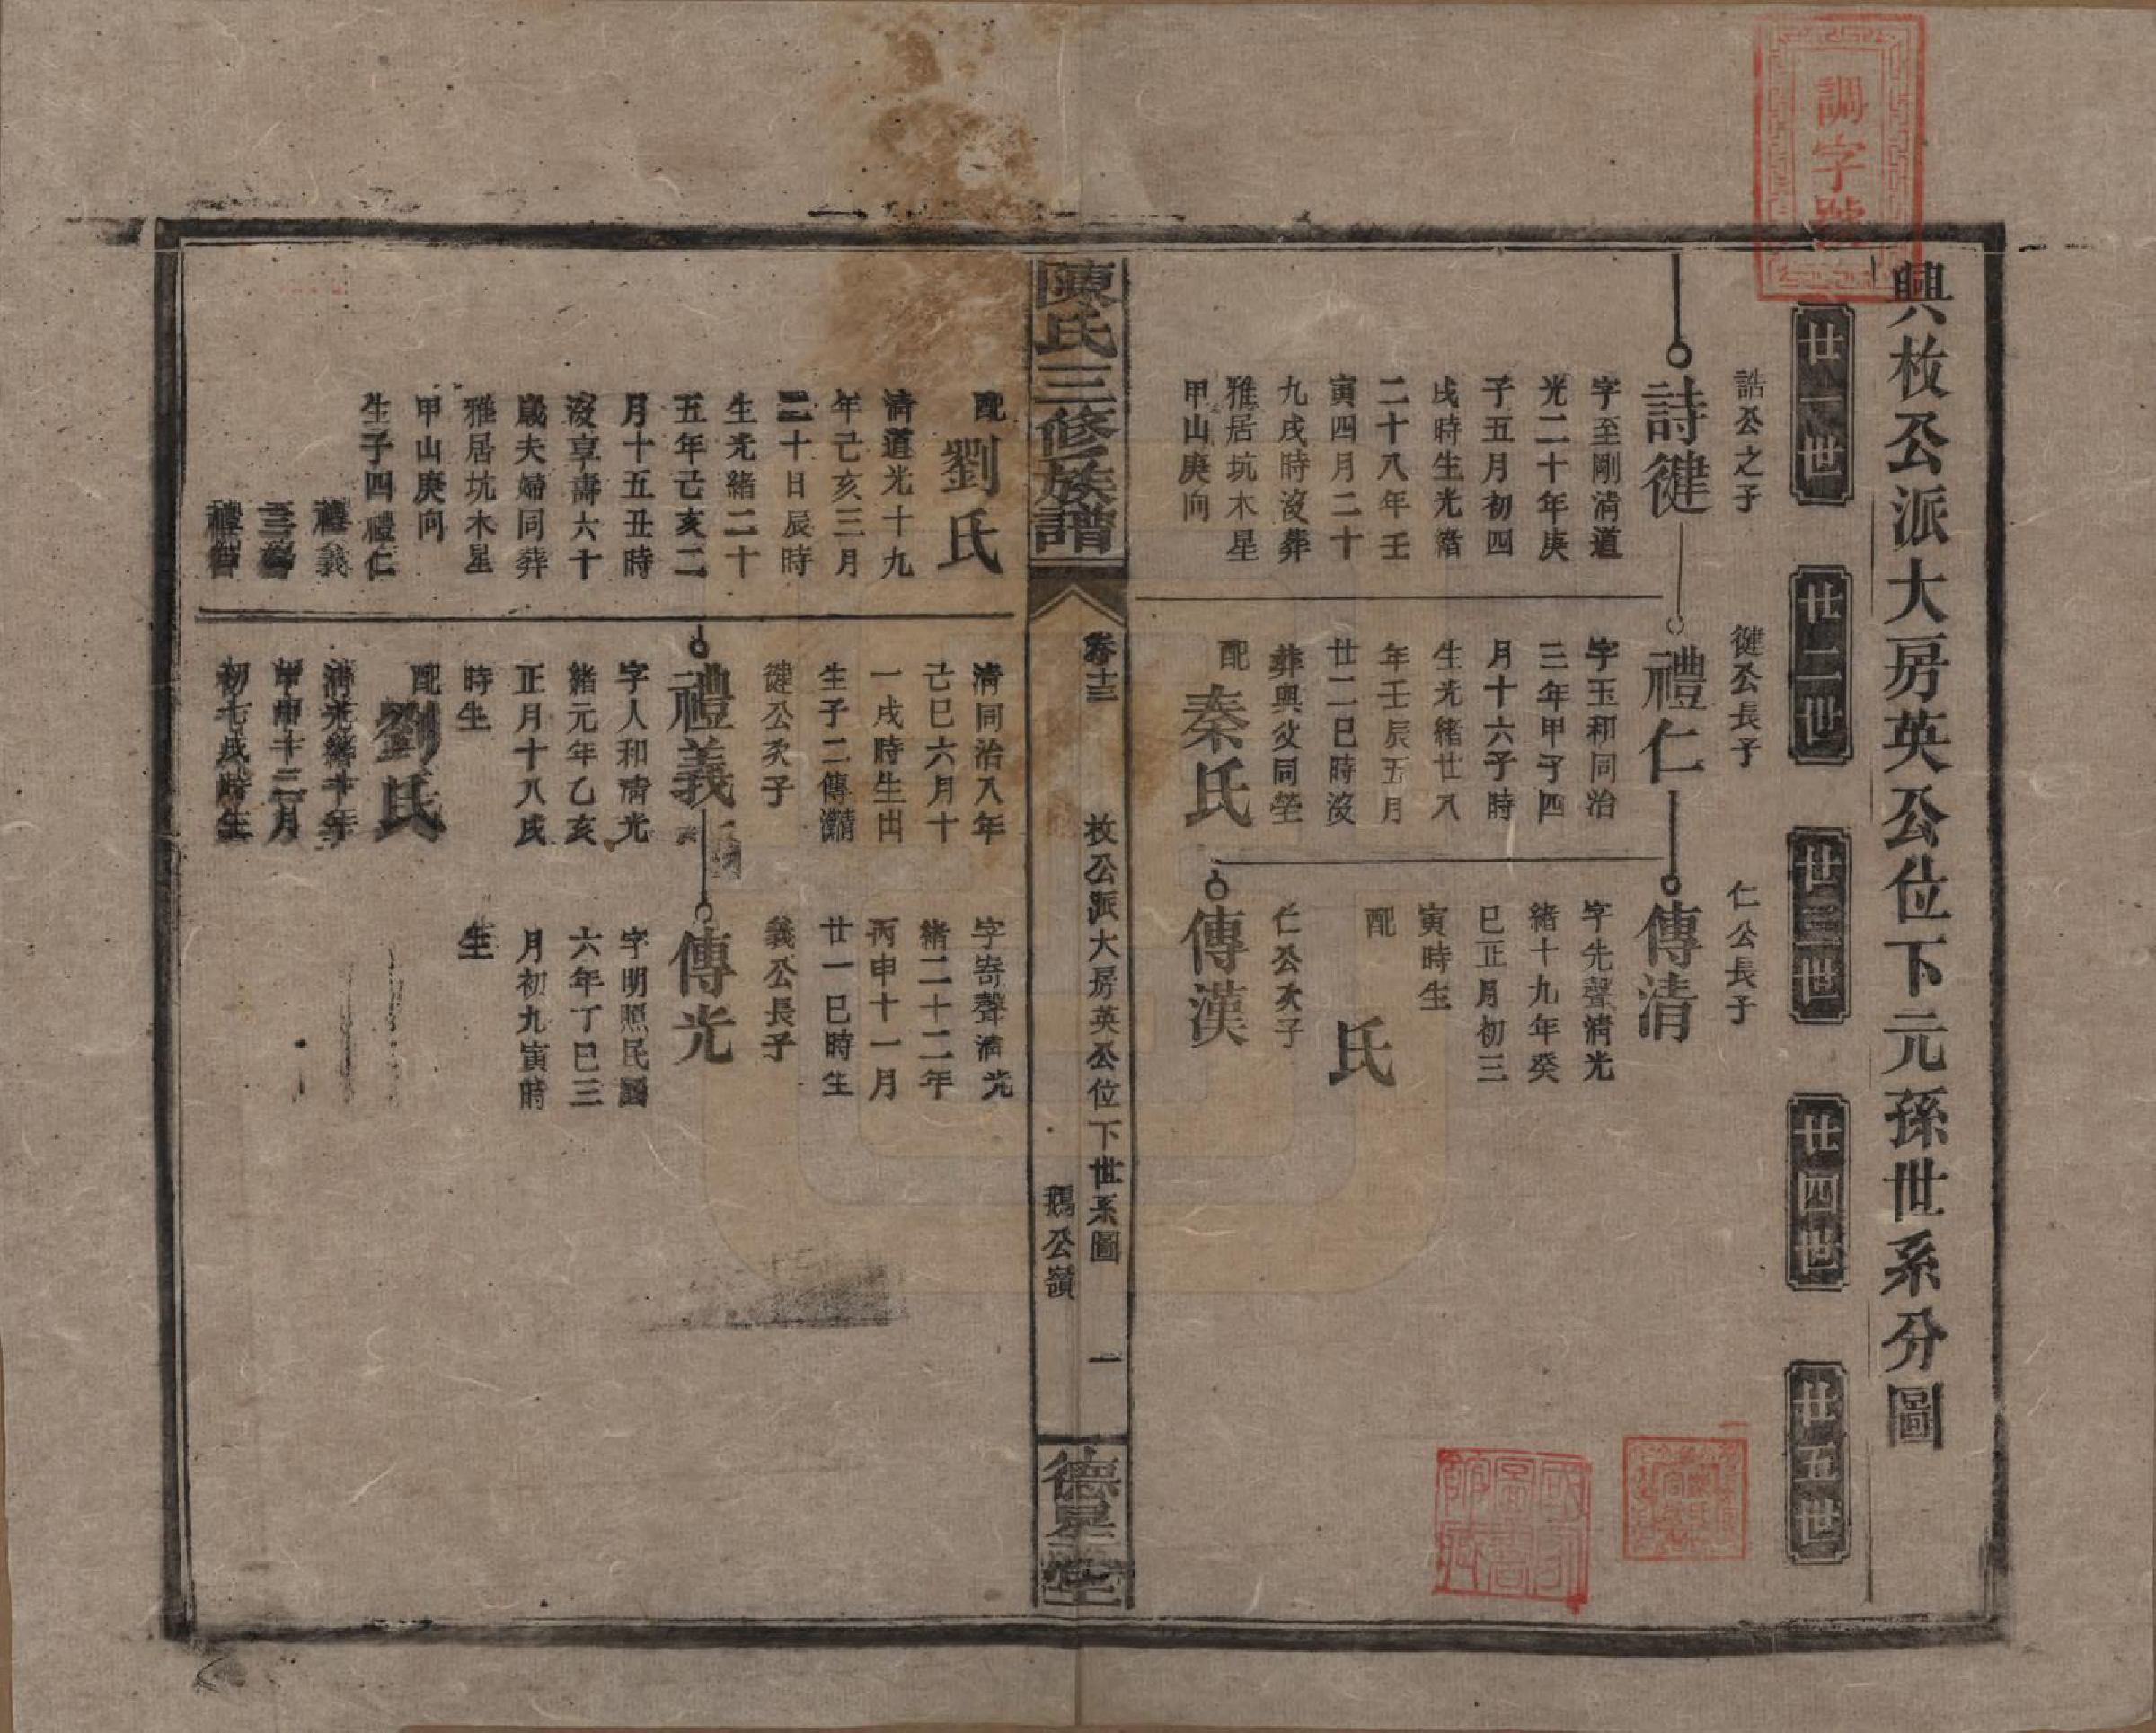 調字號
興枚公派大房英公位下元孫世系分圖
廿一世
廿二世
廿三世
廿四世
廿五世
誥公之子
詩徤
字至剛清道
光二十年庚
子五月初四
戌時生光緒
二十八年壬
寅四月二十
九戌時沒葬
雅居坑木星
甲山庚向
徤公長子
禮仁
字玉和同治
三年甲子四
月十六子時
生光緒廿八
年壬辰五月
廿二巳時沒
葬與父同塋
配
秦氏
仁公長子
傳清
字先聲清光
緒十九年癸
巳正月初三
寅時生
配
氏
仁公次子
傳漢
陳氏三修族譜
卷十三
枚公派大房英公位下世系圖
鵝公嶺
一
德星堂
配
劉氏
清道光十九
年己亥三月
二十日辰時
生光緒二十
五年己亥二
月十五丑時
沒享壽六十
歲夫婦同葬
雅居坑木星
甲山庚向
生子四禮仁
禮義
禮智
清同治八年
己巳六月十
一戌時生出
生子二傳清
徤公次子
禮義
字人和清光
緒元年乙亥
正月十八戌
時生
配
劉氏
清光緒十年
甲申十二月
初七戌時生
字寄聲清光
緒二十二年
丙申十一月
廿一巳時生
義公長子
傳光
字明照民國
六年丁巳三
月初九寅時
生